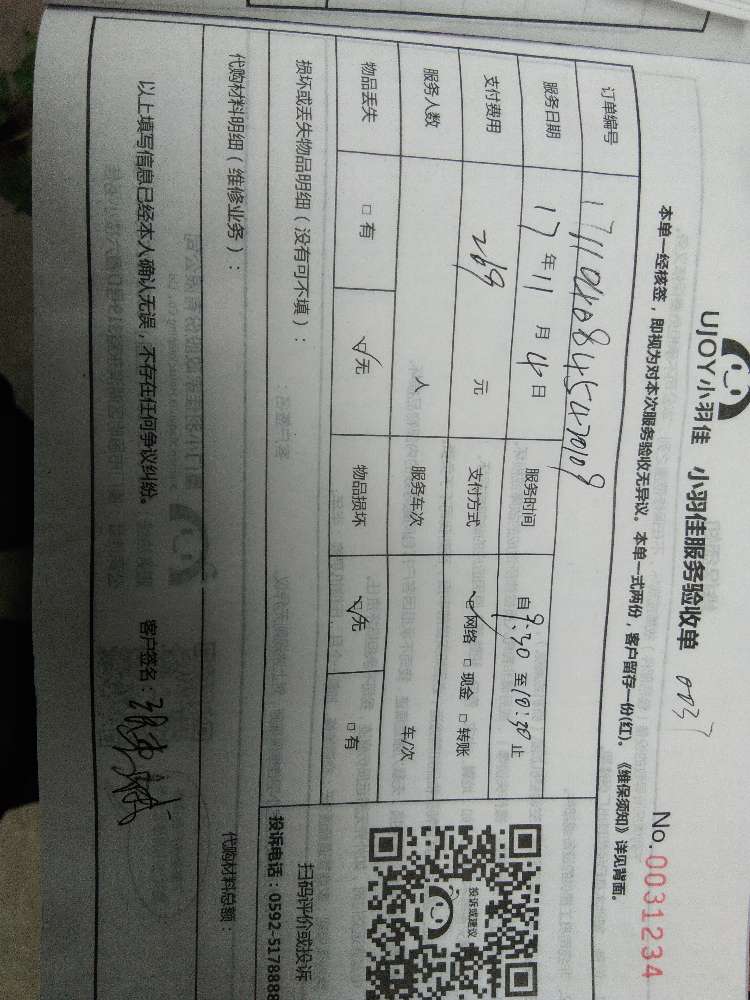 UJOY小羽佳 小羽佳服务验收单 0037 No.0031234
本单一经核签，即视为对本次服务验收无异议。本单一式两份，客户留存一份(红)。《维保须知》详见背面。
订单编号
服务日期 17年11月4日 服务时间 自9:30至10:30止
支付费用 269 元 支付方式 网络 □现金 □转账
服务人数 人 服务车次 车/次
物品丢失 □有 无 物品损坏 无 □有
投诉或建议
损坏或丢失物品明细（没有可不填）：
扫码评价或投诉
投诉电话：0592-5178888
代购材料明细（维修业务）：
代购材料总额：
以上填写信息已经本人确认无误，不存在任何争议纠纷。 客户签名：